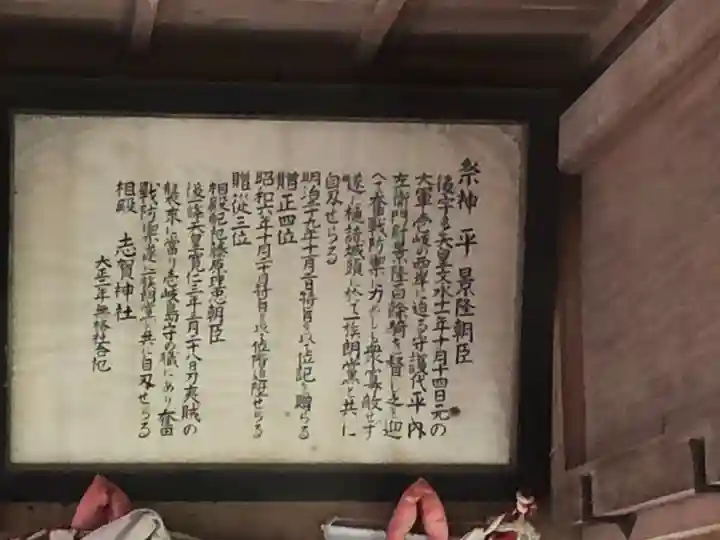 祭神 平 景隆朝臣
後宇多天皇文永十一年十月十四日元の
大軍壱岐の西岸に迫る守護代平内
左衛門尉景隆百余騎を督し之を迎
へて奮戦防禦に力めしも衆寡敵せず
遂に樋詰城頭に於て一族朗党と共に
自刃せらる
明治二十九年十一月二日特旨を以て位記を贈らる
贈正四位
昭和六年十月二十日特旨を以て位階追陞せらる
贈従三位
相殿配祀藤原理忠朝臣
後一條天皇寛仁三年三月二十八日刀夷賊の
襲来に當り壱岐島守の職にあり奮
戦防禦遂に族朗党と共に自刃せらる
相殿 志賀神社
大正二年無格社合祀